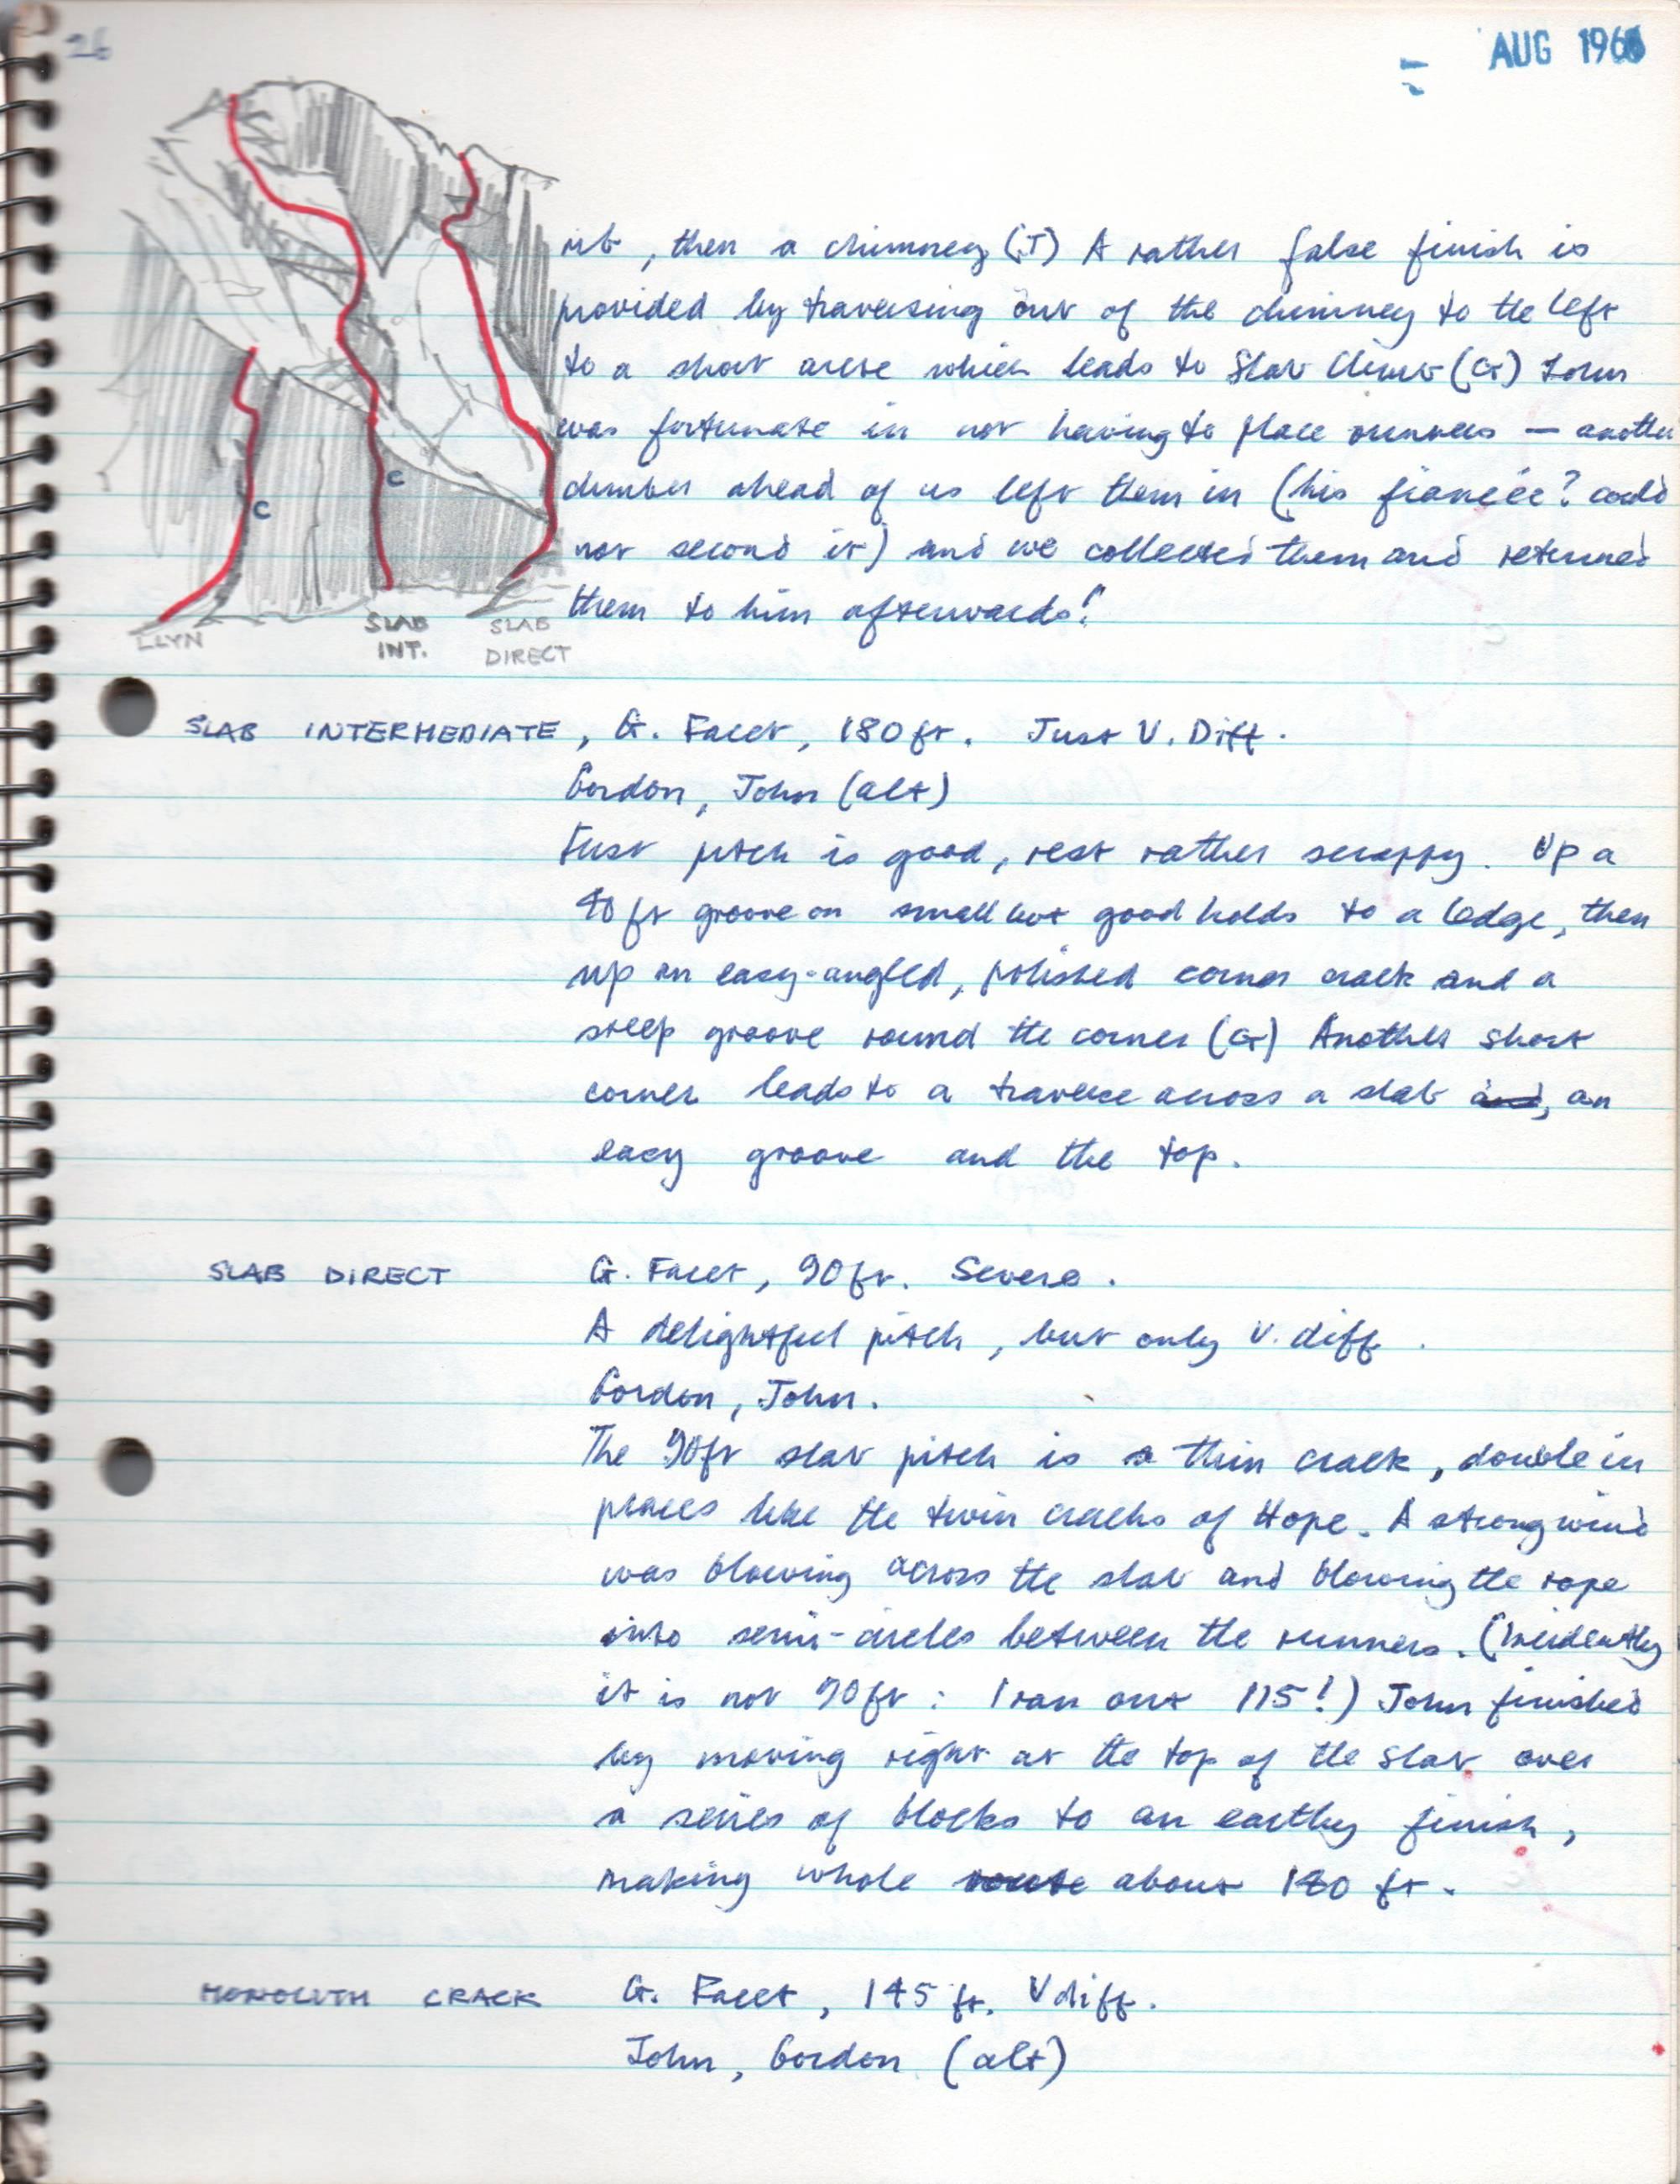 26
AUG 1966
rib, then a chimney (J) A rather false finish is
provided by traversing out of the chimney to the left
to a short arete which leads to Slab Climb (G) John
was fortunate in not having to place runners — another
climber ahead of us left them in (his fiancée? could
not second it) and we collected them and returned
them to him afterwards!
C
C
LLYN
SLAB
INT.
SLAB
DIRECT
SLAB INTERMEDIATE, G. Facet, 180 ft. Just V. Diff.
Gordon, John (alt)
First pitch is good, rest rather scrappy. Up a
40 ft groove on small but good holds to a ledge, then
up an easy-angled, polished corner crack and a
steep groove round the corner (G) Another short
corner leads to a traverse across a slab and, an
easy groove and the top.
SLAB DIRECT G. Facet, 90 ft. Severe.
A delightful pitch, but only V. diff.
Gordon, John.
The 90ft slab pitch is a thin crack, double in
places like the twin cracks of Hope. A strong wind
was blowing across the slab and blowing the rope
into semi-circles between the runners. (Incidently
it is not 90ft: I ran out 115!) John finished
by moving right at the top of the slab over
a series of blocks to an earthy finish,
making whole route about 180 ft.
MONOLITH CRACK G. Facet, 145 ft. V diff.
John, Gordon (alt)